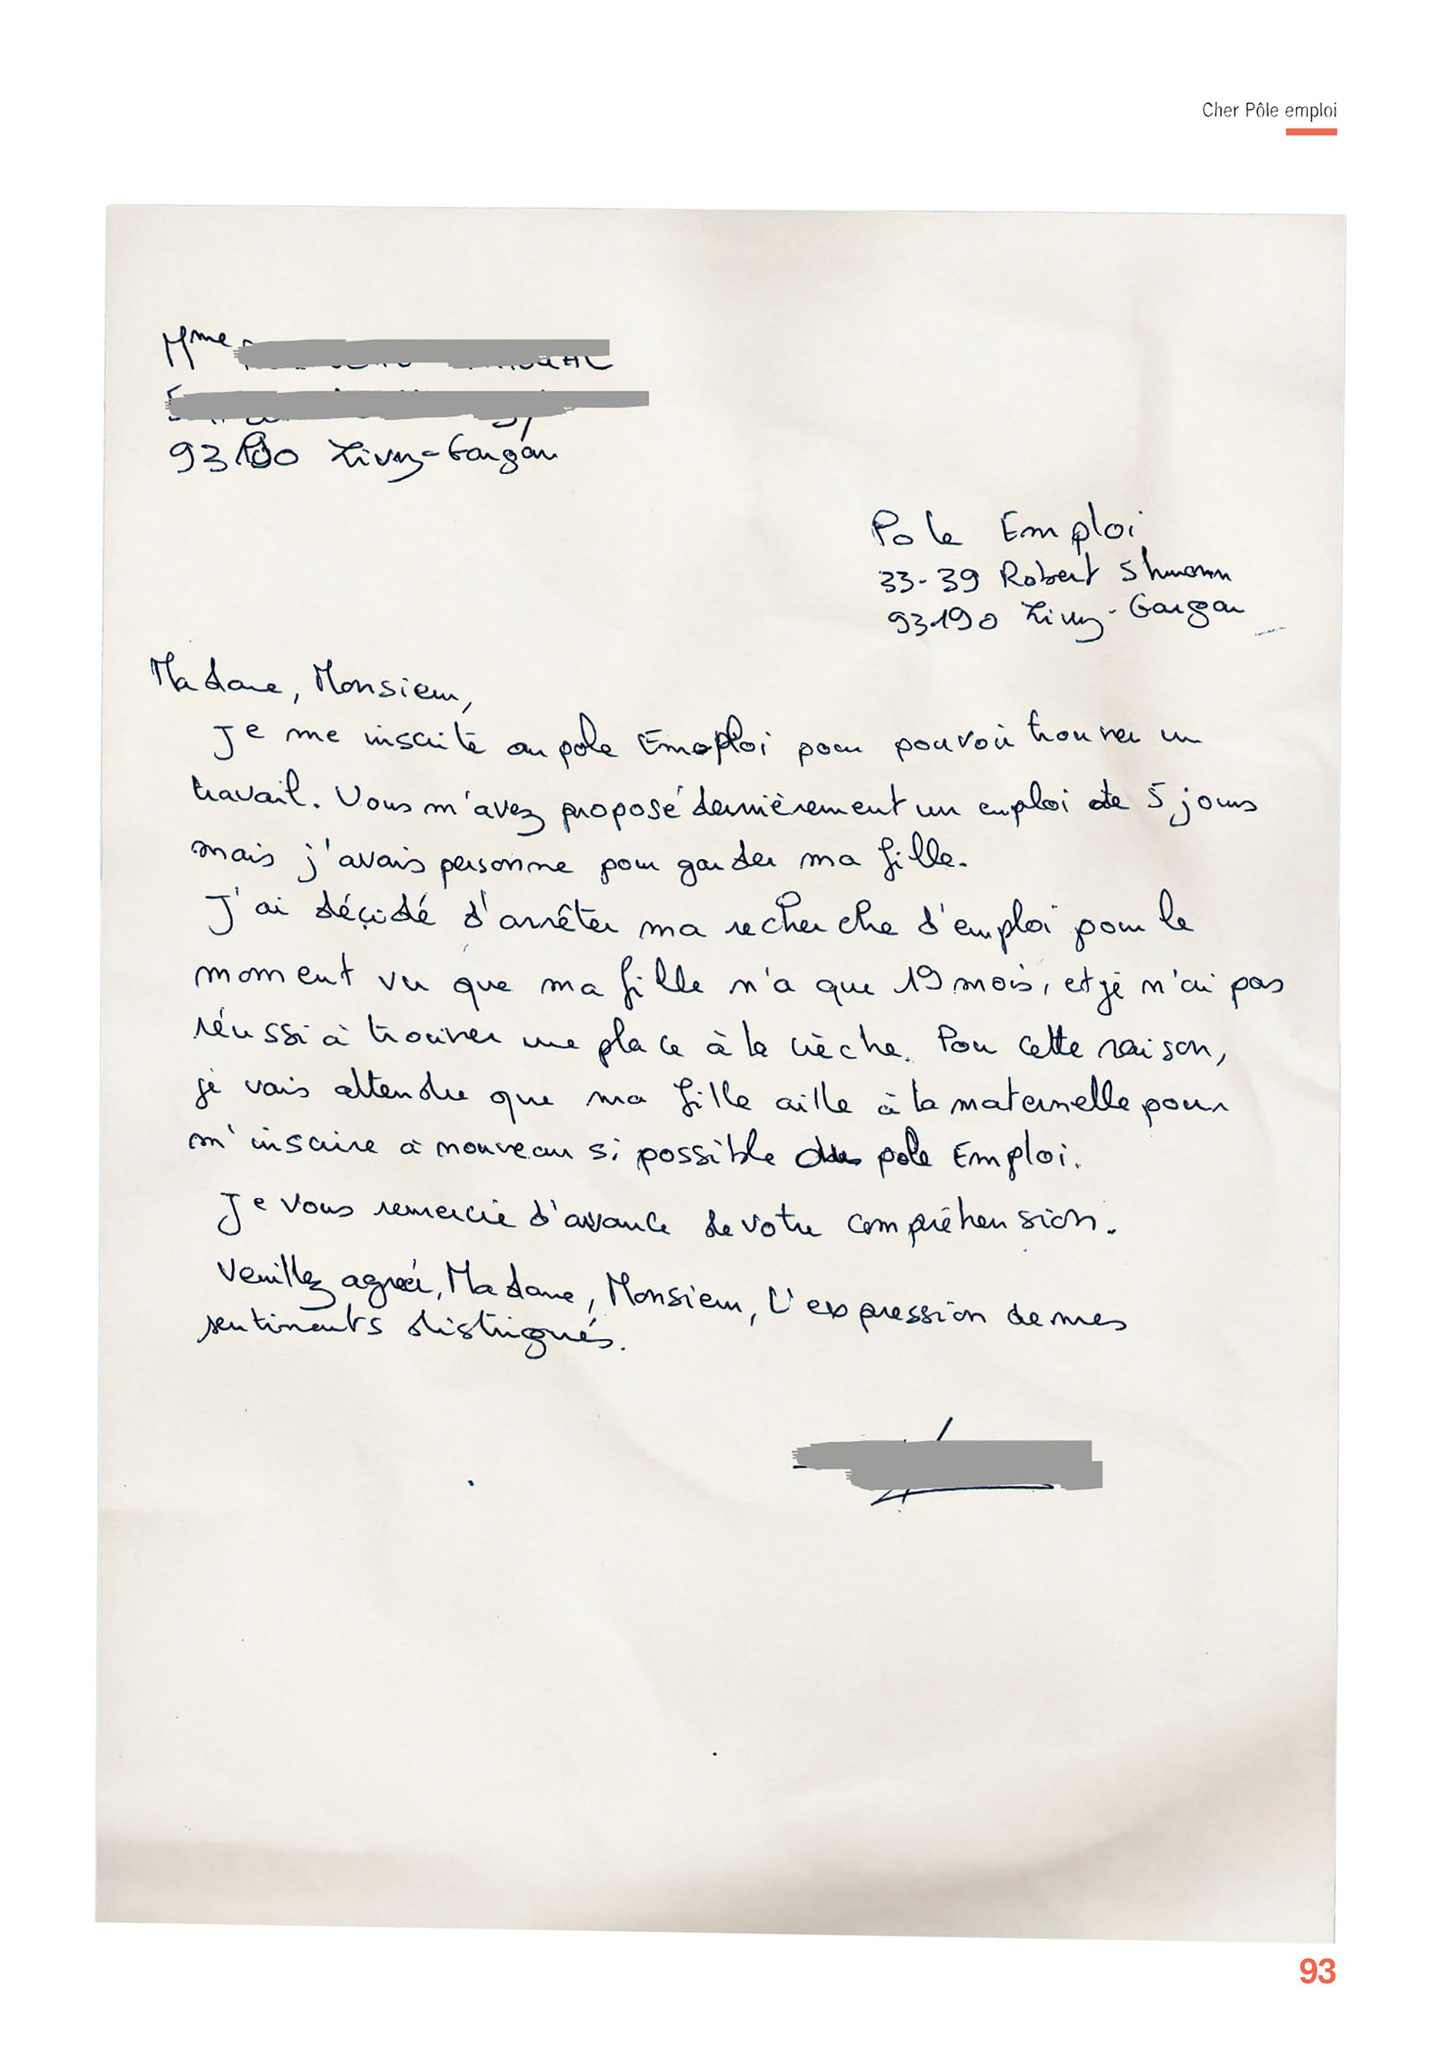 Cher Pôle emploi
Mme
93190 Livry-Gargan
Pole Emploi
33-39 Robert Shumann
93190 Livry-Gargan
Madame, Monsieur,
Je me inscrite au pole Emploi pour pouvoir trouver un
travail. Vous m'avez proposé dernièrement un emploi de 5 jours
mais j'avais personne pour garder ma fille.
J'ai décidé d'arrêter ma recherche d'emploi pour le
moment vu que ma fille n'a que 19 mois, et je n'ai pas
réussi à trouver une place à la crèche. Pour cette raison,
je vais attendre que ma fille aille à la maternelle pour
m'inscrire à nouveau si possible au pole Emploi.
Je vous remercie d'avance de votre compréhension.
Veuillez agréer, Madame, Monsieur, l'expression de mes
sentiments distingués.
93